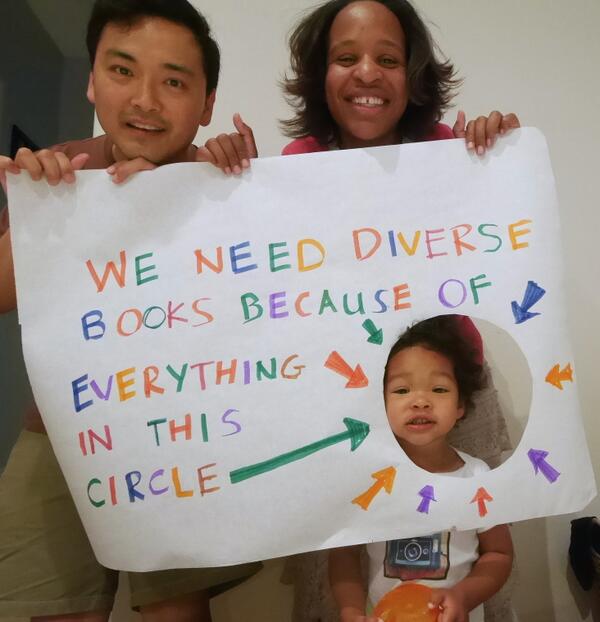 WE NEED DIVERSE
BOOKS BECAUSE OF
EVERYTHING
IN THIS
CIRCLE